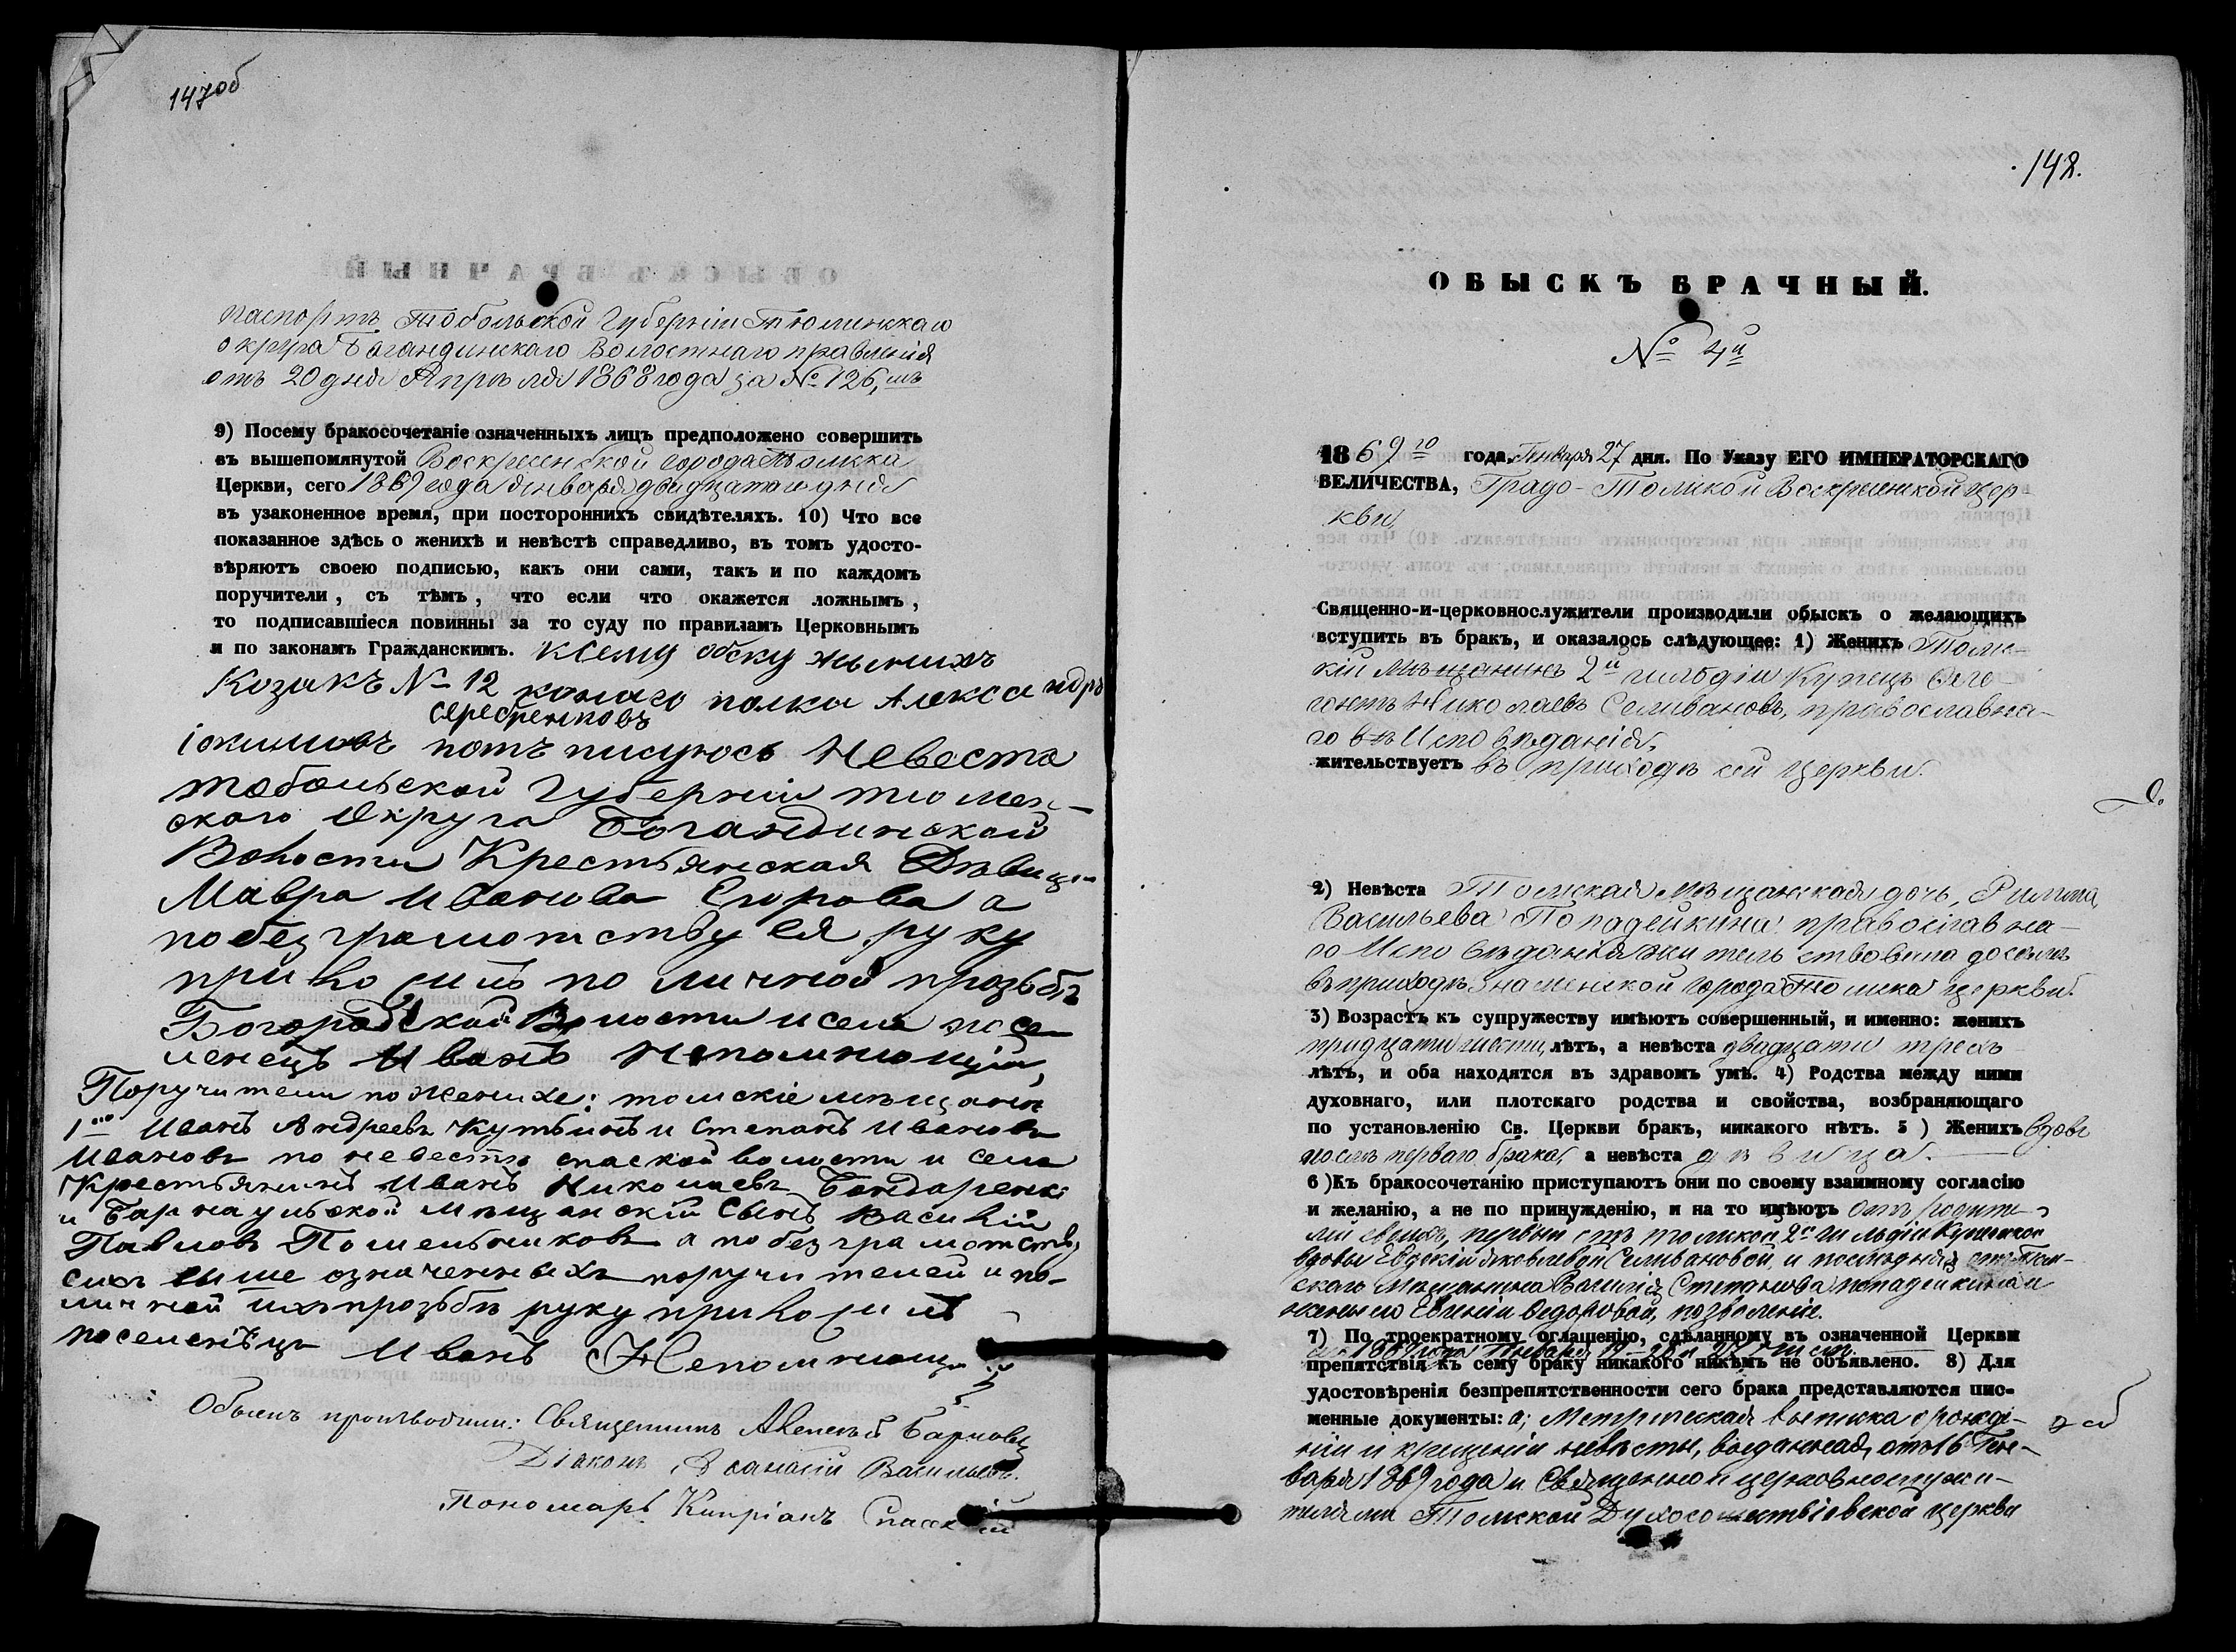 147об
паспортъ Тобольской Губерніи Тюменскаго
округа Богандинскаго Волостнаго правленія
отъ 20 дня Апрѣля 1868 года за № 126,мъ
9) Посему бракосочетаніе означенныхъ лицъ предположено совершить
въ вышепомянутой Воскресенской города Томска
Церкви, сего 1869 года Января двадцатаго дня
въ узаконенное время, при постороннихъ свидѣтеляхъ. 10) Что все
показанное здѣсь о женихѣ и невѣстѣ справедливо, въ томъ удосто-
вѣряютъ своею подписью, какъ они сами, такъ и по каждомъ
поручители, съ тѣмъ, что если что окажется ложнымъ,
то подписавшіеся повинны за то суду по правиламъ Церковнымъ
и по законамъ Гражданскимъ. Ксему обску
Козакъ № 12 полка Александръ
потъ писуюсь Невеста
тобольской Губерніи тюмен-
скаго Округа Богандинской
Волости Крестьянская Дѣвица
Мавра Иванова Егорова а
побезграмотству ея руку
приложилъ по личной прозьбѣ
Богородской Волости исела посе
ленецъ Иванъ Непомнющій,
Поручители по женихе: томскіе мѣщани
1ю Иванъ Андреевъ Кутьинъ и Степанъ Ивановъ
Ивановъ по невестѣ спаской волости и села
Крестьянинъ Иванъ Николаевъ Бондаренко
и Барнаульской мѣщанскій Сынъ Василій
Павловъ Помельниковъ а побезграмотству
сихъ выше означенныхъ поручителей и по-
личной ихъ прозьбѣ руку приложилъ
поселенецъ Иванъ Непомнющій
Обыскъ производили: Священникъ Алексѣй
Діаконъ Аѳанасій Васильевъ.
Пономарь Кипріанъ Спасскій
148.
ОБЫСКЪ БРАЧНЫЙ.
№ 4й
1869го года Генваря 27 дня. По Указу ЕГО ИМПЕРАТОРСКАГО
ВЕЛИЧЕСТВА, Градо-Томской Воскресенской цер-
кви,
Священно-и-церковнослужители производили обыскъ о желающихъ
вступить въ бракъ, и оказалось слѣдующее: 1) Женихъ Томс-
кій мѣщанинъ 2й гильдіи Купецъ Фего-
нтъ Николаевъ Селивановъ, православна-
го Исповѣданія,
жительствуетъ въ приходѣ сей церкви.
2) Невѣста Томская Мѣщанская дочь, Римма
Васильева Попадейкина православна-
го Исповѣданія жительствовала доселѣ
въ приходѣ Знаменской города Томска церкви.
3) Возрастъ къ супружеству имѣютъ совершенный, и именно: женихъ
тридцати шести лѣтъ, а невѣста двадцати трехъ
лѣтъ, и оба находятся въ здравомъ умѣ. 4) Родства между ними
духовнаго, или плотскаго родства и свойства, возбраняющаго
по установленію Св. Церкви бракъ, никакого нѣтъ. 5) Женихъ вдовъ
послѣ перваго брака, а невѣста дѣвица.
6) Къ бракосочетанію приступаютъ они по своему взаимному согласію
и желанію, а не по принужденію, и на то имѣютъ отъ родите-
лей своихъ, первый отъ томской 2й гильдіи Купеческой
вдовы Евдокіи Яковлевой Селивановой, и послѣдняя отъ Том-
скаго Мѣщанина Василія Степанова Попадейкина и
жены его Евгеніи Ѳедоровой, позволеніе.
7) По троекратному оглашенію, сдѣланному въ означенной Церкви
1869 года Января 19, 26 и 27 числ.
препятствія къ сему браку никакого никѣмъ не объявлено. 8) Для
удостовѣренія безпрепятственности сего брака представляются пис-
менные документы: а; Метрическая выписка о рожде-
ніи и крещеніи невѣсты, выданная, отъ 16 Ген-
варя 1869 года и Священно и церковнослужи-
телями Томской Духосошествіевской церкви